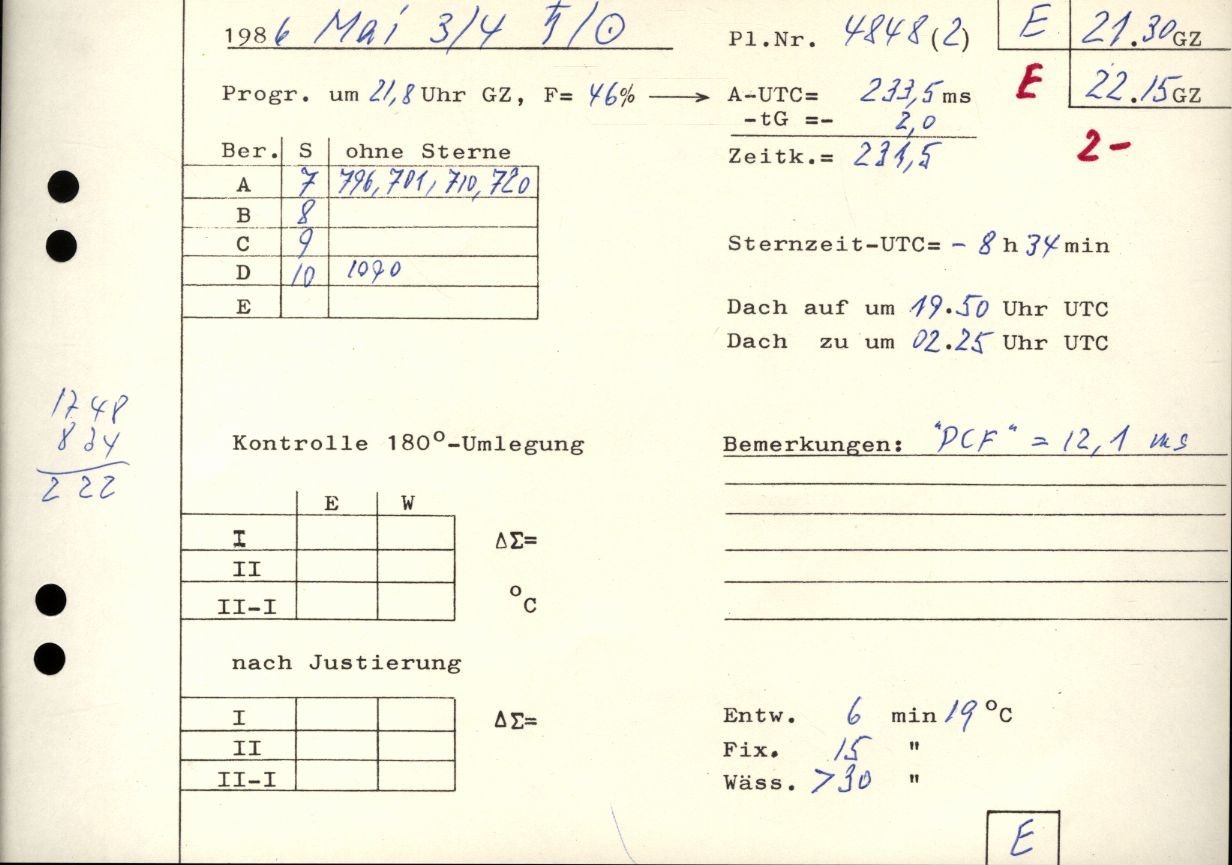 1986 Mai 3/4 ♄/☉
Pl.Nr. 4848(2)
E 21.30GZ
E 22.15GZ
2-
Progr. um 21,8 Uhr GZ, F= 46% → A-UTC= 233,5 ms
-tG =- 2,0
Zeitk.= 231,5
Ber. S ohne Sterne
A 7 796, 701, 710, 720
B 8
C 9
D 10 1090
E
Sternzeit-UTC= - 8 h 34 min
Dach auf um 19.50 Uhr UTC
Dach zu um 02.25 Uhr UTC
1748
834
222
Kontrolle 180°-Umlegung
E W
I ΔΣ=
II
II-I °C
Bemerkungen: "DCF" = 12,1 ms
nach Justierung
I ΔΣ=
II
II-I
Entw. 6 min 19 °C
Fix. 15 "
Wäss. >30 "
E